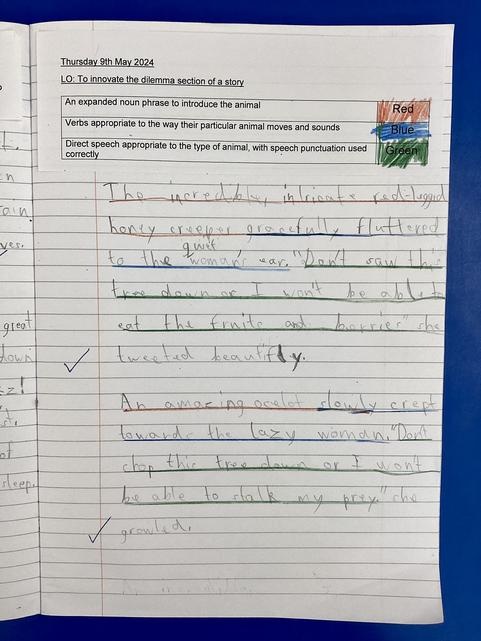 Thursday 9th May 2024
LO: To innovate the dilemma section of a story
An expanded noun phrase to introduce the animal Red
Verbs appropriate to the way their particular animal moves and sounds Blue
Direct speech appropriate to the type of animal, with speech punctuation used Green
correctly
The incredbly, intricate red-legged
honey creeper gracefully fluttered
quiet
to the woman's ear. "Don't saw this
tree down or I won't be able to
eat the fruits and berries" she
tweeted beautifly.
An amazing ocelot slowly crept
towards the lazy woman. "Don't
chop this tree down or I won't
be able to stalk my prey." she
growled.
great
down
zz!
of
sleep.